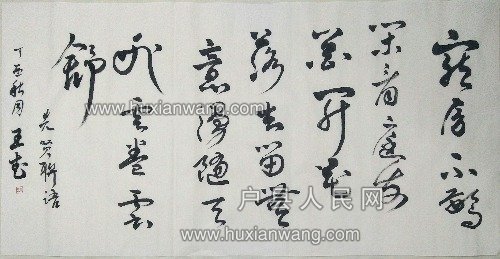 寵辱不驚
閒看庭前
花開花
落去留無
意漫隨天
外云卷雲
舒
先賢聯語
丁酉秋月 王
www.huxianwang.com
户县人民网
www.huxianwang.com